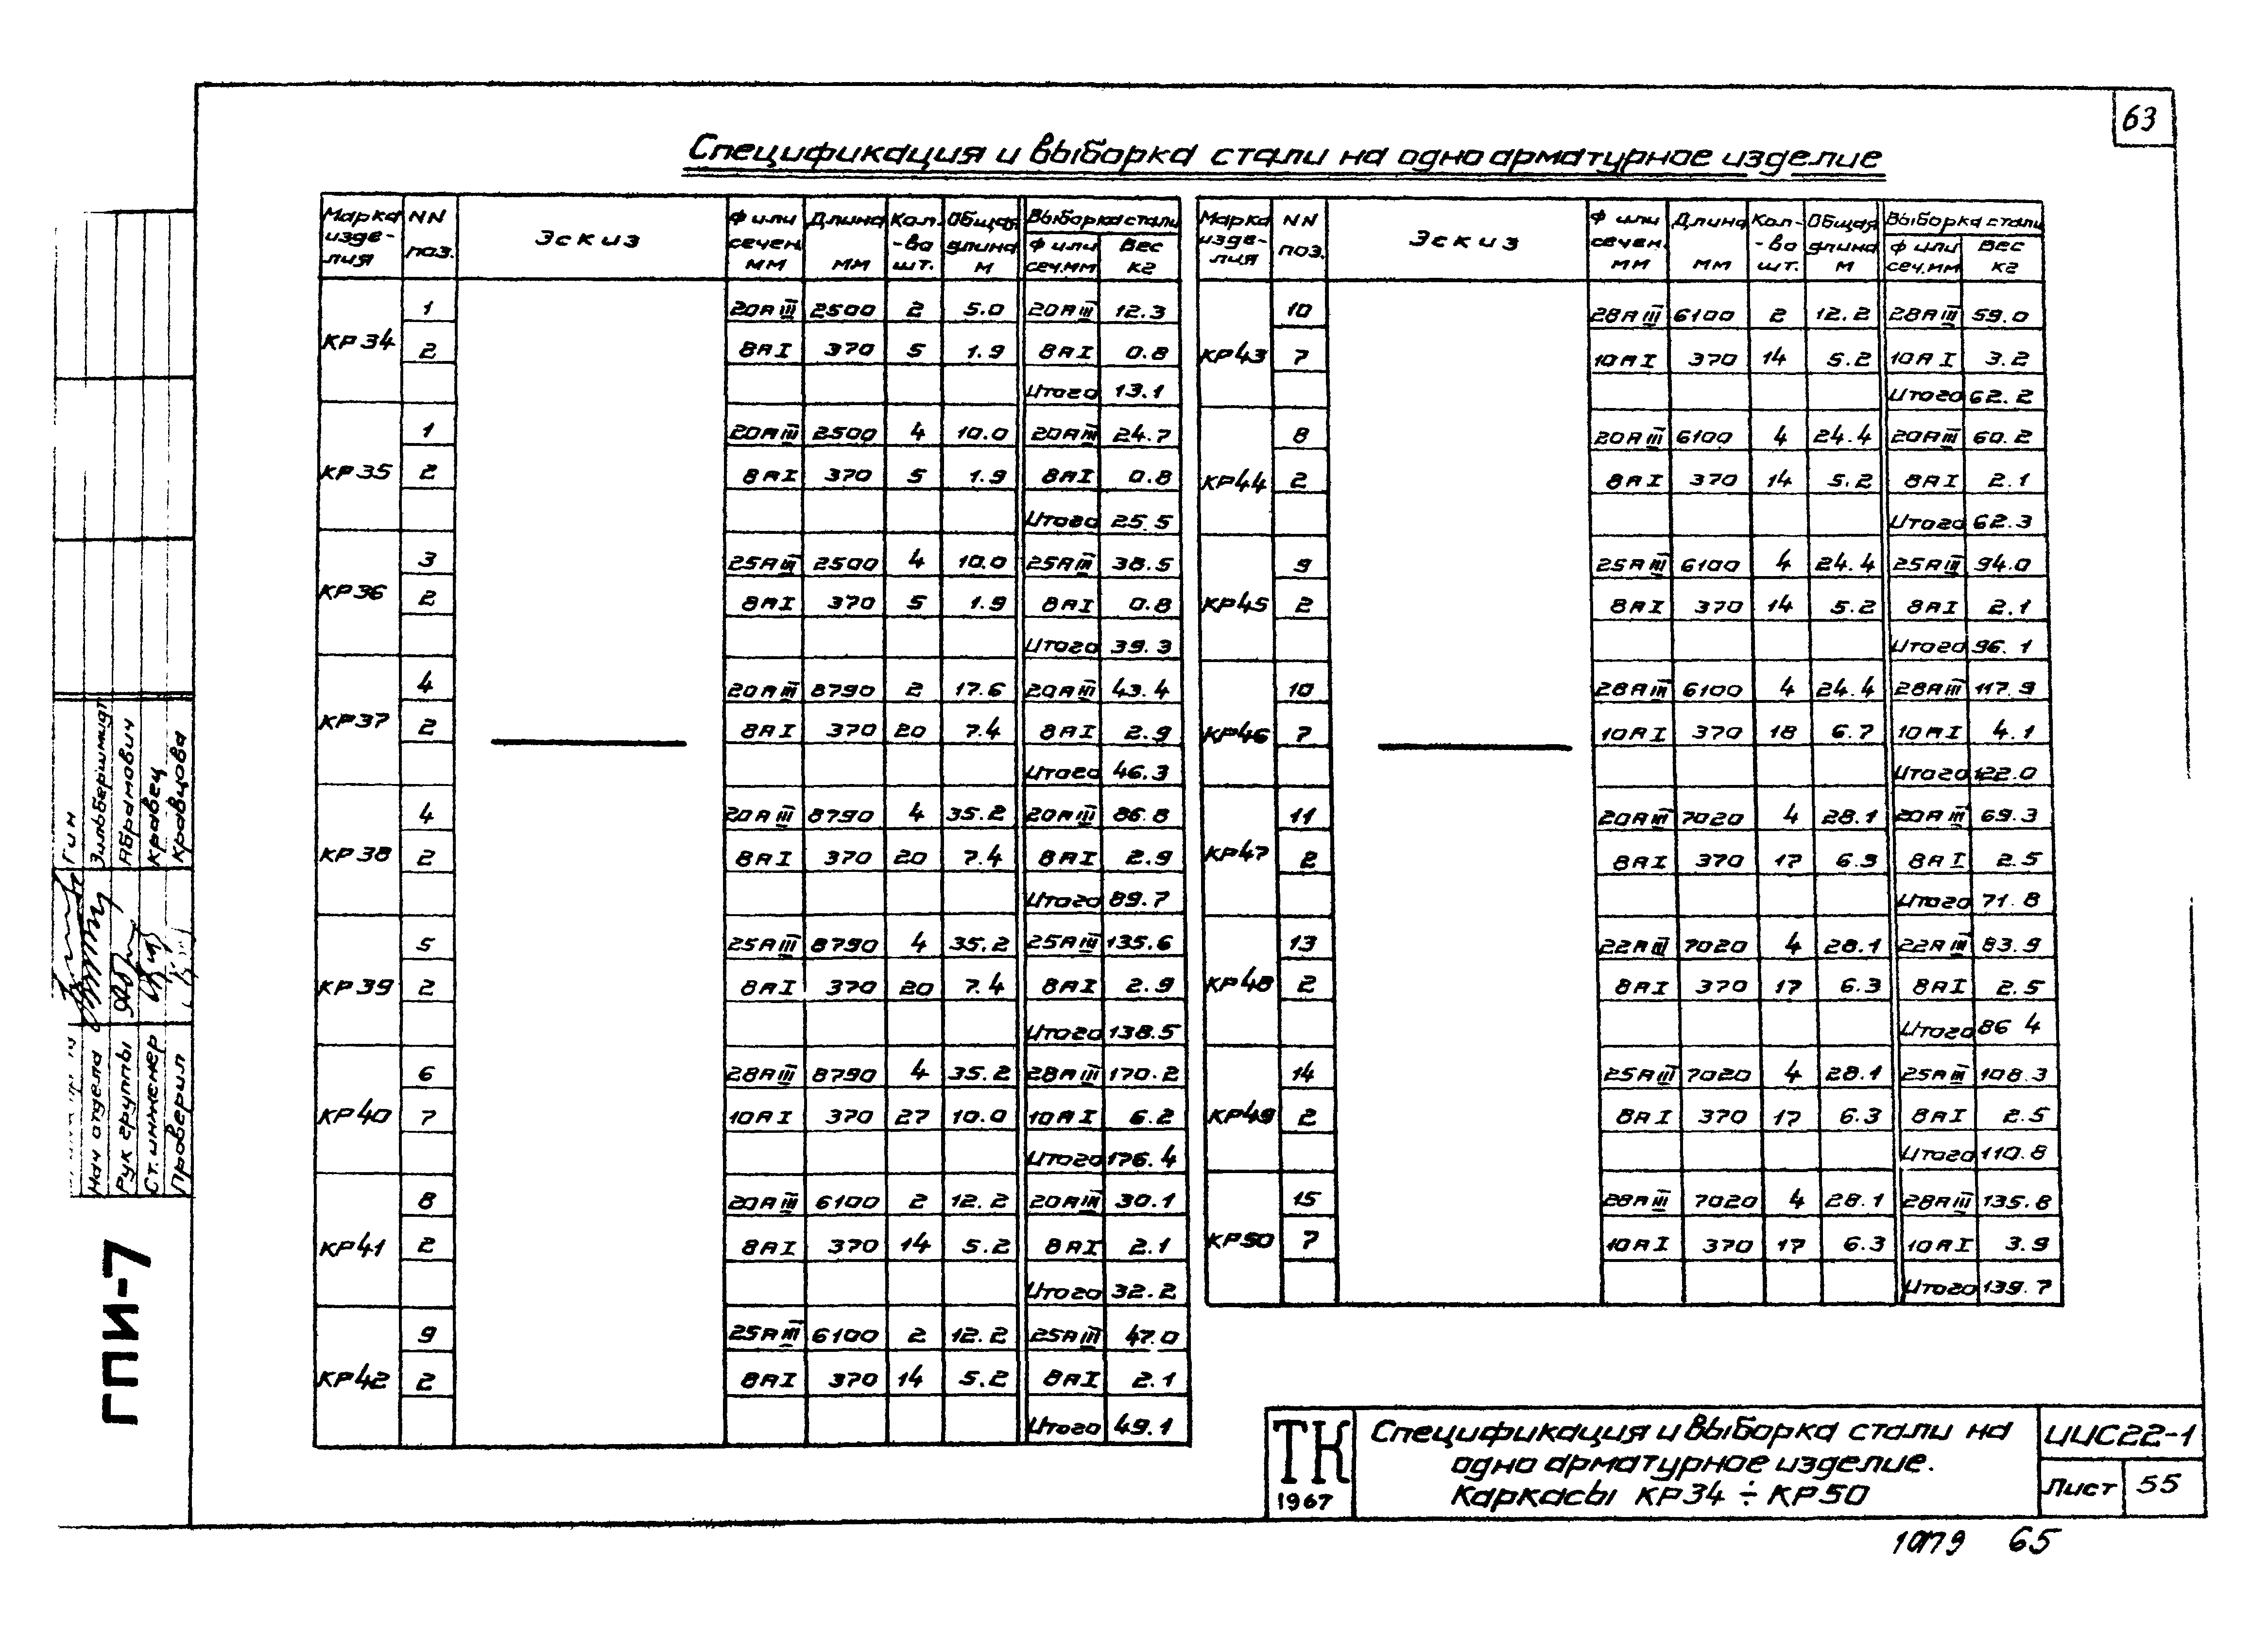 63
Спецификация и выборка стали на одно арматурное изделие
Марка изделия NN поз. Эскиз Ф или сечен. мм Длина мм Кол-ва шт. Общая длина м Выборка стали Ф или сеч. мм Вес кг
КР34 1 20АIII 2500 2 5.0 20АIII 12.3
2 8АI 370 5 1.9 8АI 0.8
Итого 13.1
КР35 1 20АIII 2500 4 10.0 20АIII 24.7
2 8АI 370 5 1.9 8АI 0.8
Итого 25.5
КР36 3 25АIII 2500 4 10.0 25АIII 38.5
2 8АI 370 5 1.9 8АI 0.8
Итого 39.3
КР37 4 20АIII 8790 2 17.6 20АIII 43.4
2 8АI 370 20 7.4 8АI 2.9
Итого 46.3
КР38 4 20АIII 8790 4 35.2 20АIII 86.8
2 8АI 370 20 7.4 8АI 2.9
Итого 89.7
КР39 5 25АIII 8790 4 35.2 25АIII 135.6
2 8АI 370 20 7.4 8АI 2.9
Итого 138.5
КР40 6 28АIII 8790 4 35.2 28АIII 170.2
7 10АI 370 27 10.0 10АI 6.2
Итого 176.4
КР41 8 20АIII 6100 2 12.2 20АIII 30.1
2 8АI 370 14 5.2 8АI 2.1
Итого 32.2
КР42 9 25АIII 6100 2 12.2 25АIII 47.0
2 8АI 370 14 5.2 8АI 2.1
Итого 49.1
Марка изделия NN поз. Эскиз Ф или сечен. мм Длина мм Кол-ва шт. Общая длина м Выборка стали Ф или сеч. мм Вес кг
КР43 10 28АIII 6100 2 12.2 28АIII 59.0
7 10АI 370 14 5.2 10АI 3.2
Итого 62.2
КР44 8 20АIII 6100 4 24.4 20АIII 60.2
2 8АI 370 14 5.2 8АI 2.1
Итого 62.3
КР45 9 25АIII 6100 4 24.4 25АIII 94.0
2 8АI 370 14 5.2 8АI 2.1
Итого 96.1
КР46 10 28АIII 6100 4 24.4 28АIII 117.9
7 10АI 370 18 6.7 10АI 4.1
Итого 122.0
КР47 11 20АIII 7020 4 28.1 20АIII 69.3
2 8АI 370 17 6.3 8АI 2.5
Итого 71.8
КР48 13 22АIII 7020 4 28.1 22АIII 83.9
2 8АI 370 17 6.3 8АI 2.5
Итого 86 4
КР49 14 25АIII 7020 4 28.1 25АIII 108.3
2 8АI 370 17 6.3 8АI 2.5
Итого 110.8
КР50 15 28АIII 7020 4 28.1 28АIII 135.8
7 10АI 370 17 6.3 10АI 3.9
Итого 139.7
Гин
Нач отдела Зильбершмидт
Рук группы Абрамович
Ст. инженер Кравец
Проверил Кравцова
ГПИ-7
ТК
1967
Спецификация и выборка стали на
одно арматурное изделие.
Каркасы КР34 ÷ КР50
ИИС22-1
Лист 55
10179 65